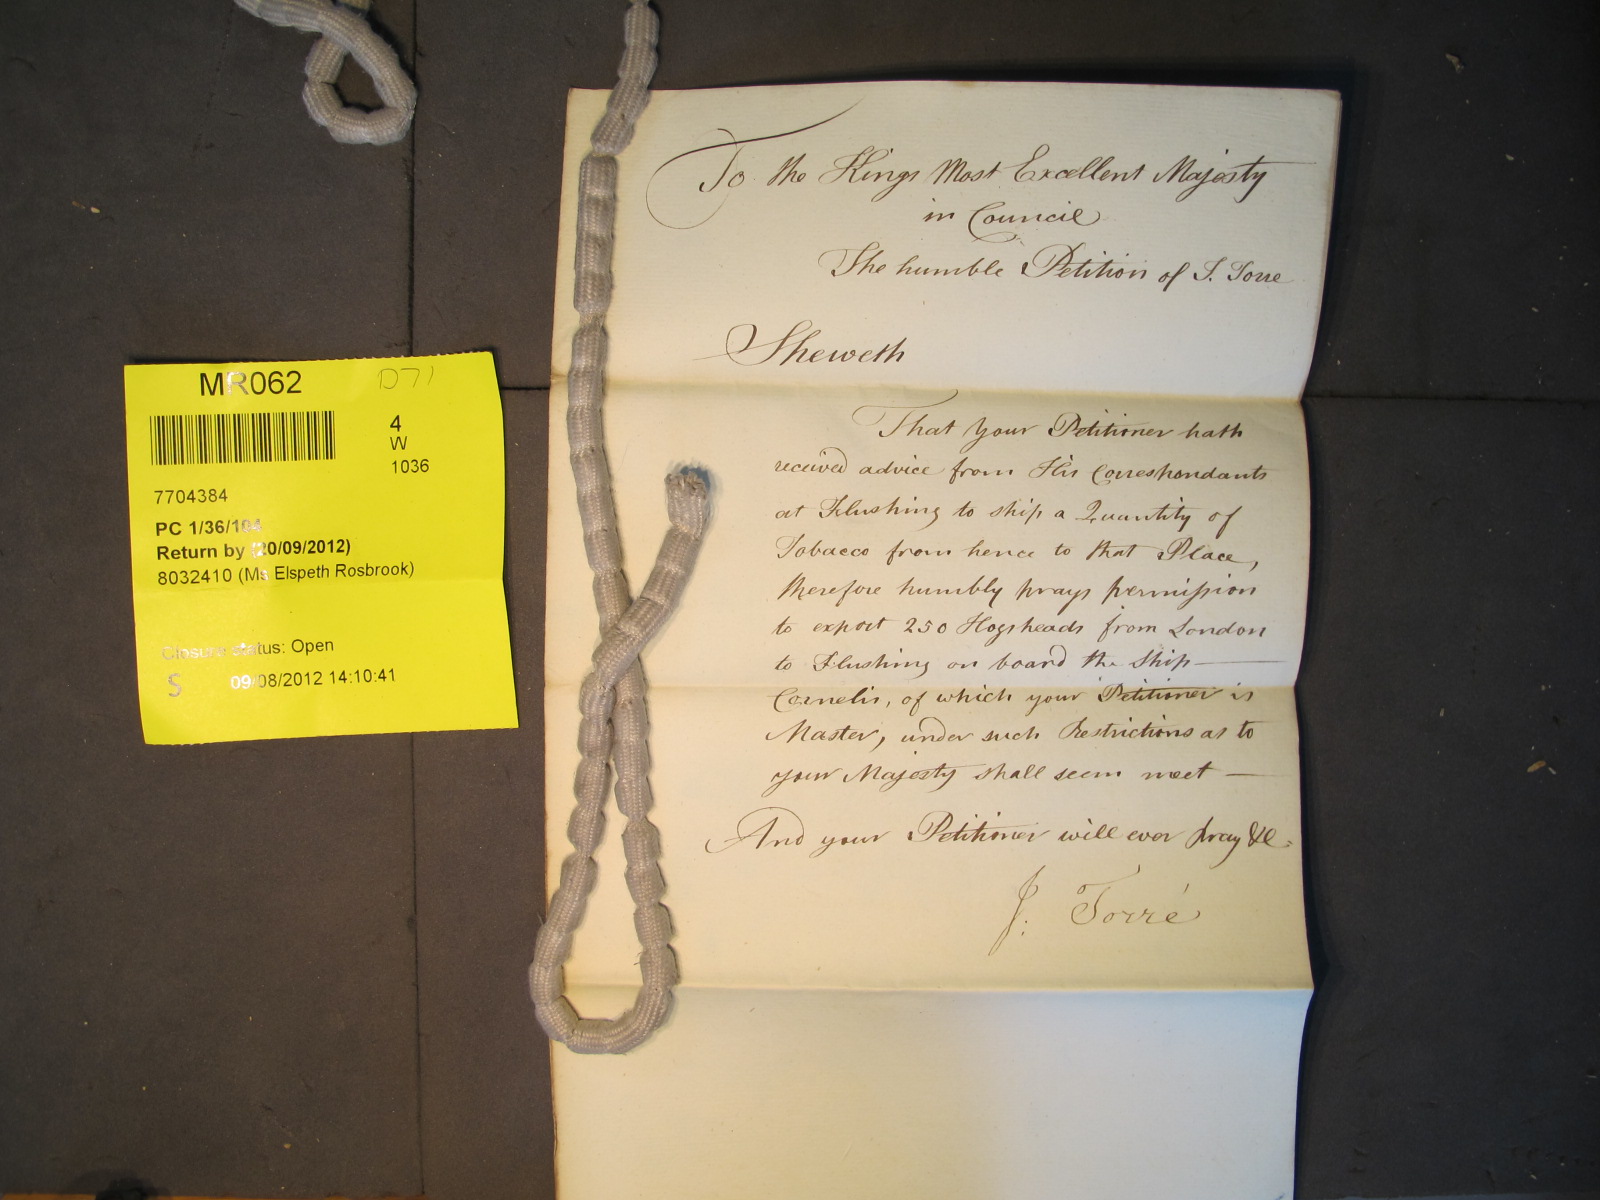 To the Kings Most Excellent Majesty
in Council
The humble Petition of J. Torre
Sheweth
That your Petitioner hath
received advice from His Correspondants
at Flushing to ship a Quantity of
Tobacco from hence to that Place,
therefore humbly prays permission
to export 250 Hogsheads from London
to Flushing on board the Ship
Cornelis, of which your Petitioner is
Master, under such Restrictions as to
your Majesty shall seem meet
And your Petitioner will ever pray &c
J. Torré
MR062 D71
4
W
1036
7704384
PC 1/36/104
Return by (20/09/2012)
8032410 (Ms Elspeth Rosbrook)
Closure status: Open
S 09/08/2012 14:10:41